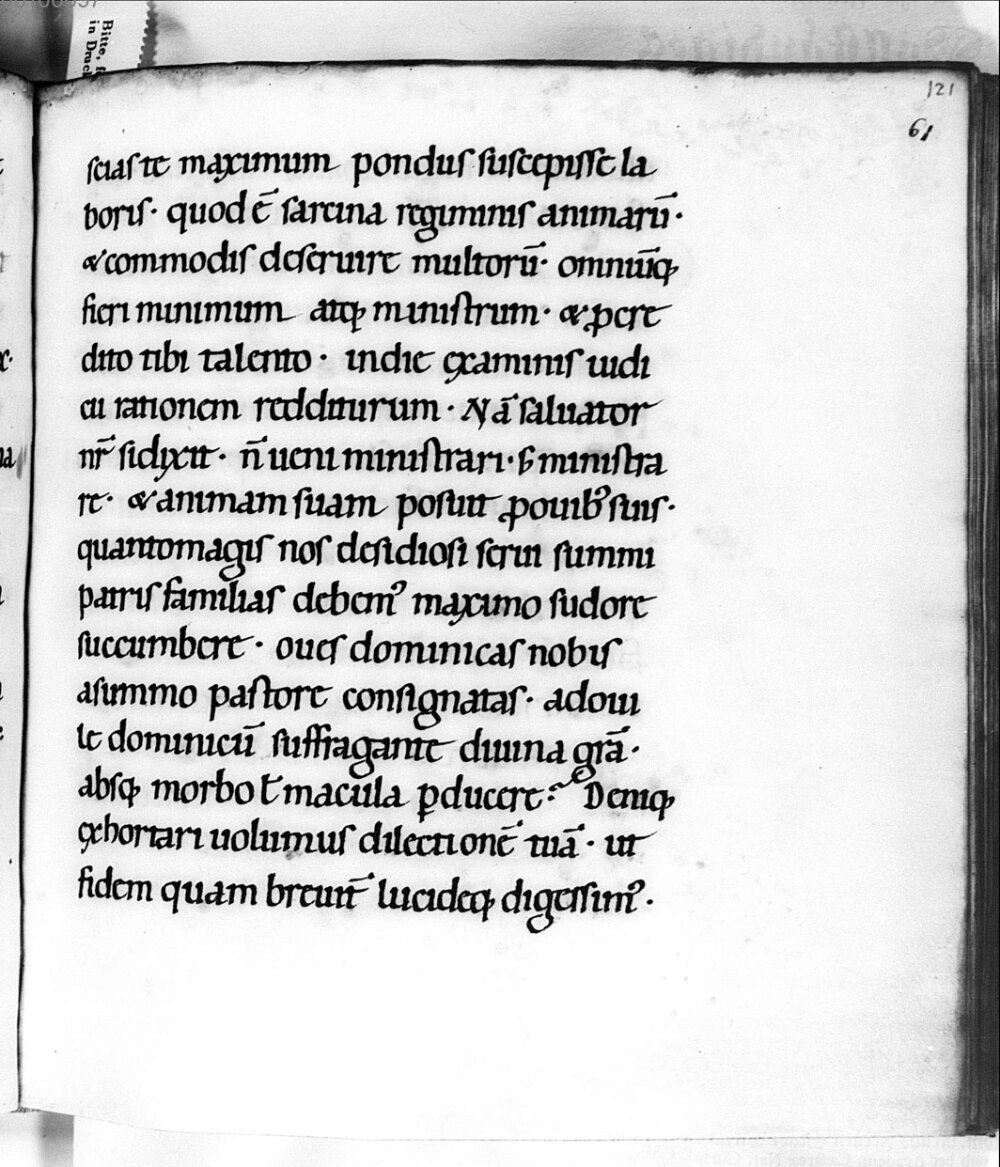 121
61
sciaſ te maximum ponduſ ſuſcepiſſe la
boriſ · quod ē ſarcina regiminiſ animarū ·
& commodiſ deſeruire multorū · omniūq;
fieri minimum atq; miniſtrum · & ꝓ cre
dito tibi talento · in die ęxaminiſ iudi
cii rationem redditurum · Nā ſaluator
nr̄ ſi dixit · n̄ ueni miniſtrari · ſ; miniſtra
re · & animam ſuam poſuit ꝓ ouib; ſuiſ ·
quanto magiſ noſ deſidioſi ſerui ſummi
patriſ familiaſ debem᾽ maximo ſudore
ſuccumbere · oueſ dominicaſ nobiſ
a ſummo paſtore conſignataſ · ad oui
le dominicū ſuffragante diuina gr̄a ·
abſq; morbo ł macula ꝑducere · Deniq;
ęxhortari uolumuſ dilectionē tuā · ut
fidem quam breuit̄ lucideq; digeſſim᾽ ·
Bitte, f
in Druc